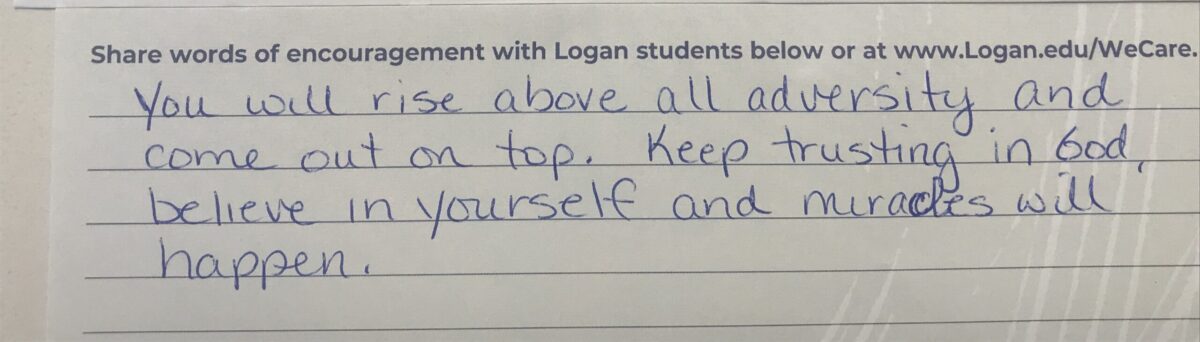 Share words of encouragement with Logan students below or at www.Logan.edu/WeCare.
You will rise above all adversity and
come out on top. Keep trusting in God,
believe in yourself and miracles will
happen.